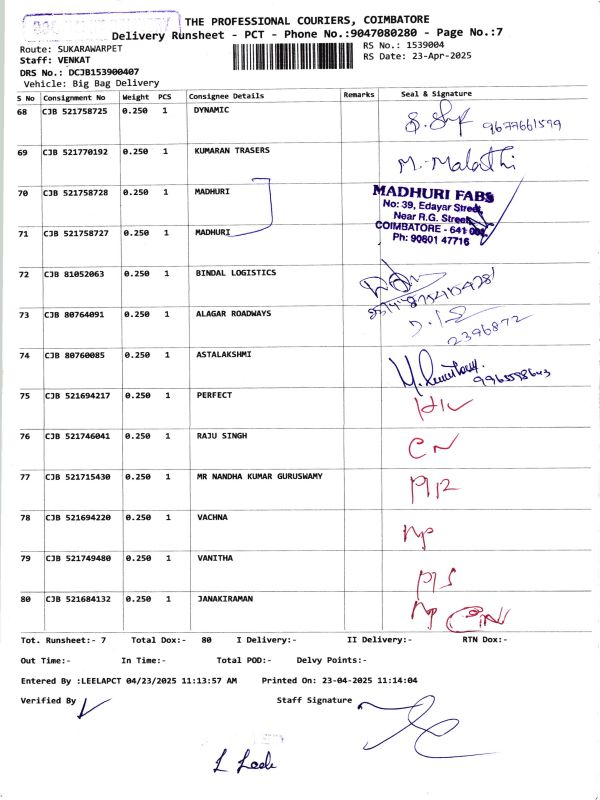 THE PROFESSIONAL COURIERS, COIMBATORE
Delivery Runsheet - PCT - Phone No.:9047080280 - Page No.:7
Route: SUKARAWARPET
RS No.: 1539004
Staff: VENKAT
RS Date: 23-Apr-2025
DRS No.: DCJB153900407
Vehicle: Big Bag Delivery
S No Consignment No Weight PCS Consignee Details Remarks Seal & Signature
68 CJB 521758725 0.250 1 DYNAMIC 9677661599
69 CJB 521770192 0.250 1 KUMARAN TRASERS M. Malathi
70 CJB 521758728 0.250 1 MADHURI
MADHURI FABS
No: 39, Edayar Street,
Near R.G. Street,
COIMBATORE - 641 001.
Ph: 90801 47716
71 CJB 521758727 0.250 1 MADHURI
72 CJB 81052063 0.250 1 BINDAL LOGISTICS
73 CJB 80764091 0.250 1 ALAGAR ROADWAYS 2396872
74 CJB 80760085 0.250 1 ASTALAKSHMI
75 CJB 521694217 0.250 1 PERFECT
76 CJB 521746041 0.250 1 RAJU SINGH CN
77 CJB 521715430 0.250 1 MR NANDHA KUMAR GURUSWAMY
78 CJB 521694220 0.250 1 VACHNA NP
79 CJB 521749480 0.250 1 VANITHA
80 CJB 521684132 0.250 1 JANAKIRAMAN NP CN
Tot. Runsheet:- 7 Total Dox:- 80 I Delivery:- II Delivery:- RTN Dox:-
Out Time:- In Time:- Total POD:- Delvy Points:-
Entered By :LEELAPCT 04/23/2025 11:13:57 AM Printed On: 23-04-2025 11:14:04
Verified By Staff Signature